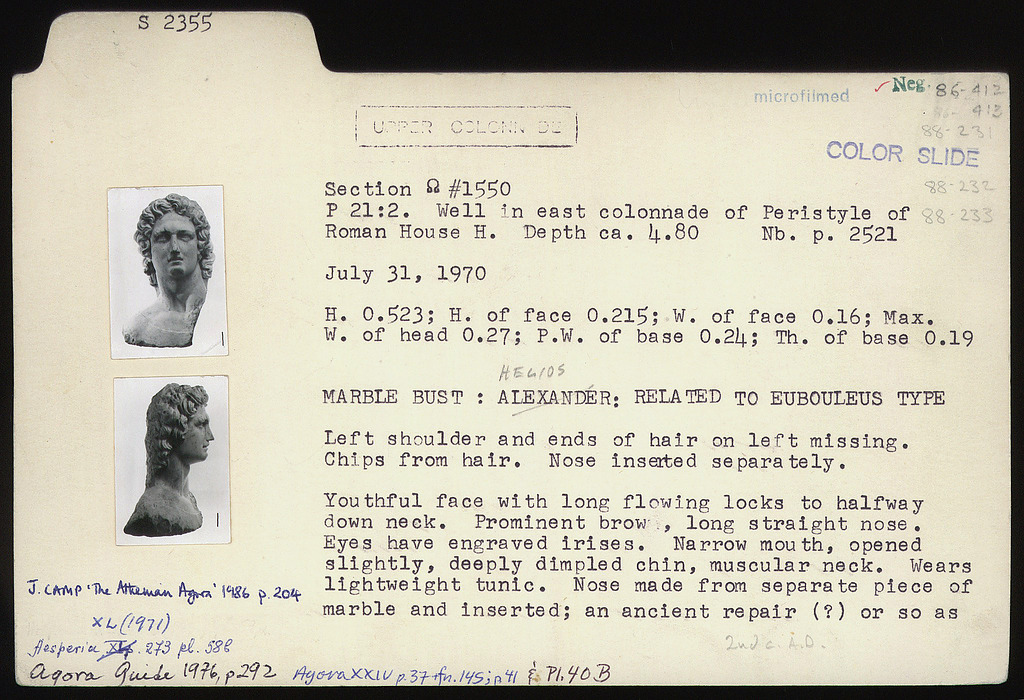 S 2355
microfilmed
Neg. 86-412
86- 413
88-231
UPPER COLONN DE
COLOR SLIDE
88-232
88-233
Section Ω #1550
P 21:2. Well in east colonnade of Peristyle of
Roman House H. Depth ca. 4.80 Nb. p. 2521
July 31, 1970
H. 0.523; H. of face 0.215; W. of face 0.16; Max.
W. of head 0.27; P.W. of base 0.24; Th. of base 0.19
HELIOS
MARBLE BUST : ALEXANDER: RELATED TO EUBOULEUS TYPE
Left shoulder and ends of hair on left missing.
Chips from hair. Nose inserted separately.
Youthful face with long flowing locks to halfway
down neck. Prominent brow , long straight nose.
Eyes have engraved irises. Narrow mouth, opened
slightly, deeply dimpled chin, muscular neck. Wears
lightweight tunic. Nose made from separate piece of
marble and inserted; an ancient repair (?) or so as
2nd c. A.D.
J. CAMP 'The Athenian Agora' 1986 p. 204
XL (1971)
Hesperia, . 273 pl. 58b
Agora Guide 1976, p. 292
Agora XXIV p. 37 + fn. 145; p. 41 & Pl. 40 B